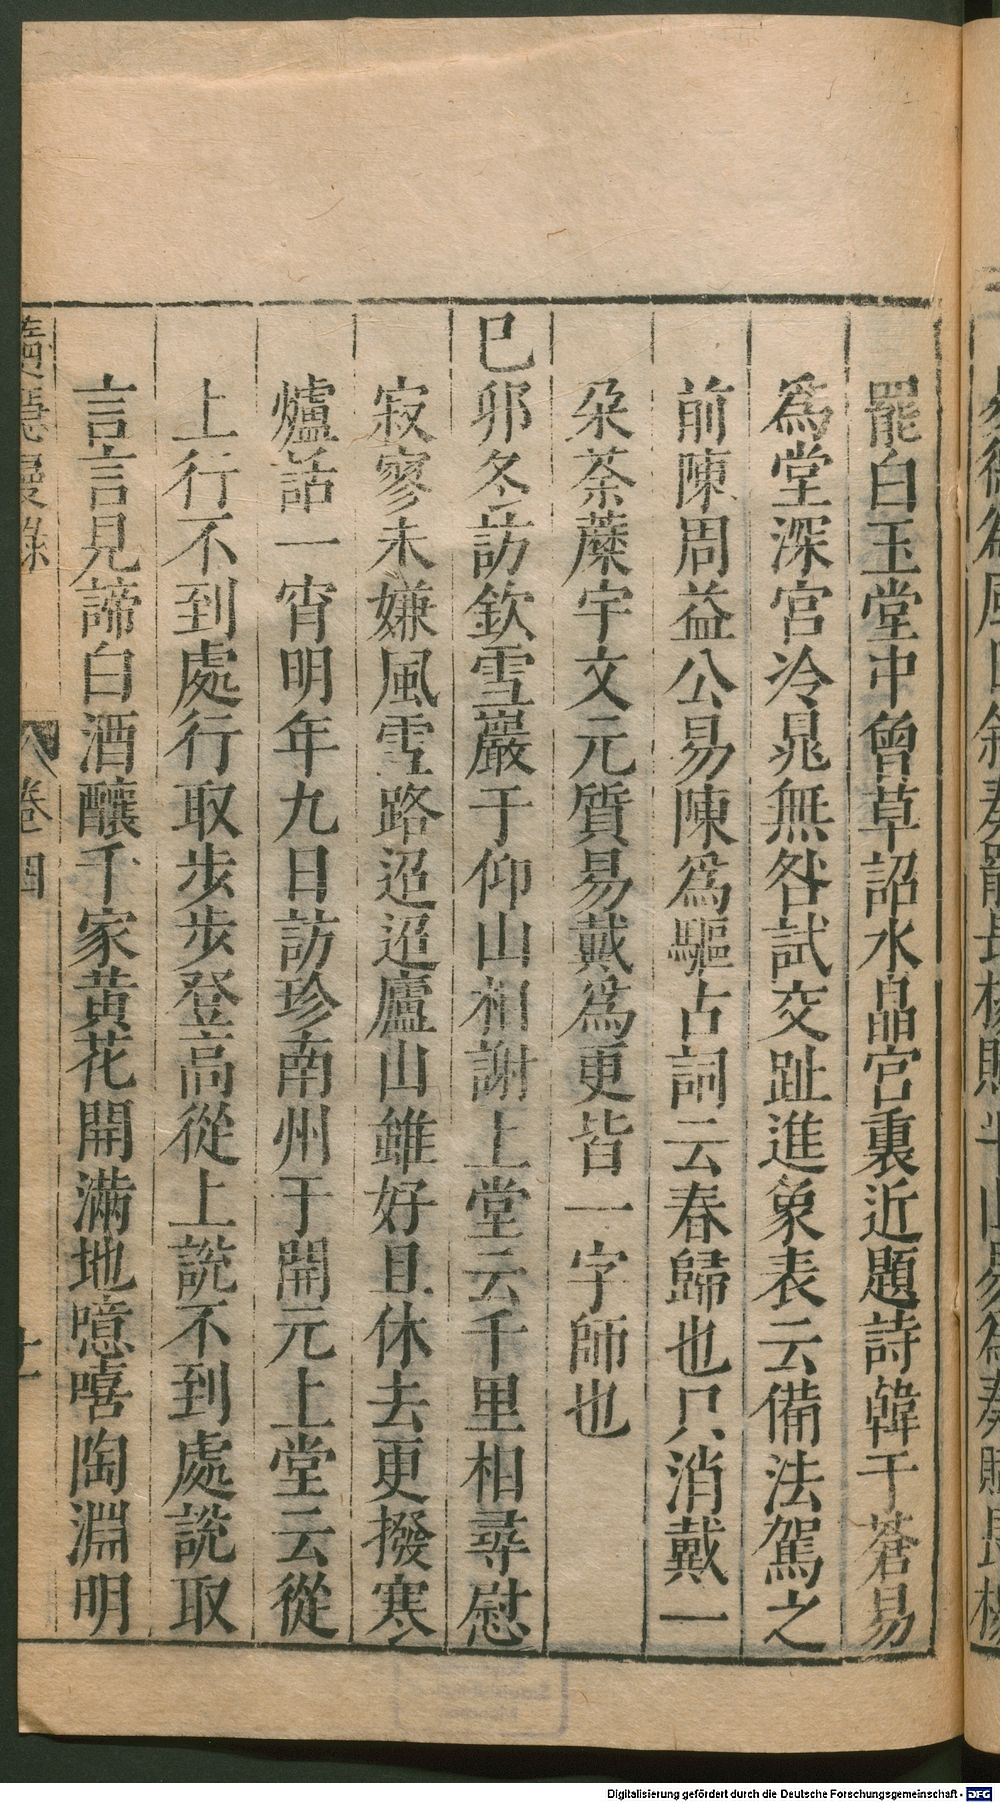 罷白玉堂中曾草詔水晶宮裏近題詩韓干蒼易
爲堂深宮冷晁無咎試交趾進象表云備法駕之
前陳周益公易陳爲驅占詞云春歸也只消戴一
朶荼蘼宇文元質易戴爲更皆一字師也
巳卯冬訪欽雪巖于仰山相謝上堂云千里相尋慰
寂寥未嫌風雪路迢迢廬山雖好且休去更撥寒
爐話一宵明年九日訪珍南州于開元上堂云從
上行不到處行取步步登高從上說不到處說取
言言見諦白酒釀千家黃花開滿地噫嘻陶淵明
隨隱漫錄
卷四
十一
Digitalisierung gefördert durch die Deutsche Forschungsgemeinschaft - DFG